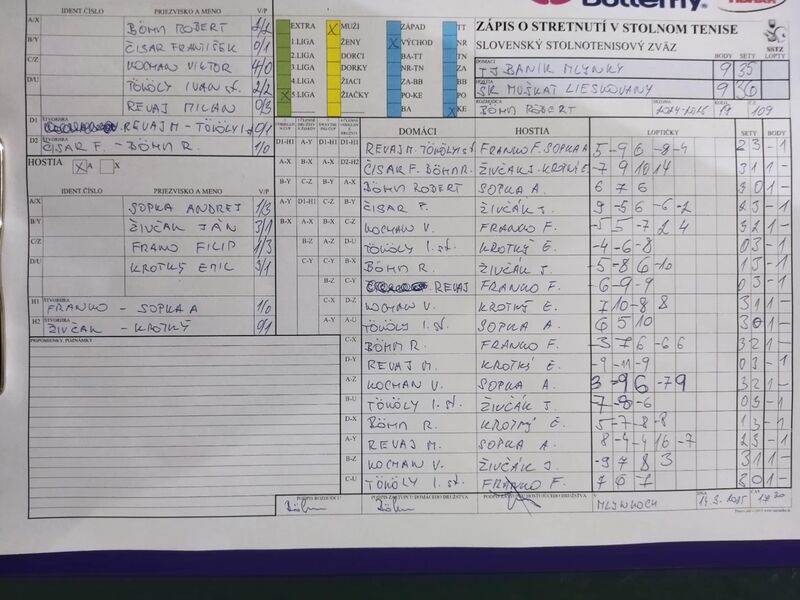 Butterfly
ZÁPIS O STRETNUTÍ V STOLNOM TENISE
SLOVENSKÝ STOLNOTENISOVÝ ZVÄZ
SSTZ
IDENT.ČÍSLO PRIEZVISKO A MENO V/P
A/X BÖHM ROBERT 2/2
B/Y ČISAR FRANTIŠEK 0/1
C/Z KOCMAN VIKTOR 4/0
D/U TÖKÖLY IVAN st. 2/2
REVAJ MILAN 0/3
D1 REVAJ M - TÖKÖLY I. 0/1
D2 ČISAR F. - BÖHM R. 1/0
HOSTIA X A X
IDENT.ČÍSLO PRIEZVISKO A MENO V/P
A/X SOPKA ANDREJ 1/3
B/Y ŽIVČÁK JÁN 3/1
C/Z FRANKO FILIP 1/3
D/U KROTKÝ EMIL 3/1
H1 ŠTVORHRA FRANKO - SOPKA A 1/0
H2 ŠTVORHRA ŽIVČÁK - KROTKÝ 0/1
PRIPOMIENKY, POZNÁMKY
EXTRA
1.LIGA
2.LIGA
3.LIGA
4.LIGA
X 5.LIGA
X MUŽI
ŽENY
DORCI
DORKY
ŽIACI
ŽIAČKY
ZÁPAD TT
X VÝCHOD NR
BA-TT BA-TN
NR-TN ZA
ZA-BB BB
PO-KE PO
BA X KE
DOMÁCI TJ BANÍK MLYNKY BODY 9 SETY 35
HOSTIA ŠK MUŠKÁT LIESKOVANY 9 36
ROZHODCA BÖHM RÓBERT SEZÓNA 2024-2025 KOLO 19 109
DOMÁCI HOSTIA LOPTIČKY SETY BODY
REVAJ M. TÖKÖLY st. FRANKO F. SOPKA A 5 -9 6 -8 -4 2 3 -1
ČISAR F. BÖHM R. ŽIVČÁK J. KROTKÝ E. -7 9 10 14 3 1 1 -
BÖHM ROBERT SOPKA A 6 7 6 3 0 1 -
ČISAR F. ŽIVČÁK J. 9 -5 6 -6 -2 2 3 -1
KOCMAN V. FRANKO F. -5 5 -7 2 4 3 2 1 -
TÖKÖLY I. st. KROTKÝ E. -4 -6 -8 0 3 -1
BÖHM R. ŽIVČÁK J. -5 -8 6 -10 1 3 -1
REVAJ FRANKO F. -6 -9 -9 0 3 -1
KOCMAN V. KROTKÝ E. 7 10 -8 8 3 1 1 -
TÖKÖLY I. st. SOPKA A. 6 5 10 3 0 1 -
C-X BÖHM R. FRANKO F. -3 7 6 -6 6 3 2 1 -
D-Y REVAJ M. KROTKÝ E. -9 -11 -9 0 3 -1
A-Z KOCMAN V. SOPKA A. 3 -9 6 -7 9 3 2 1 -
B-U TÖKÖLY I. st. ŽIVČÁK J. -7 -8 -6 0 3 -1
D-X BÖHM R. KROTKÝ E. 5 -7 -8 -8 1 3 -1
A-Y REVAJ M. SOPKA A. 8 -4 -4 16 -7 2 3 -1
B-Z KOCMAN V. ŽIVČÁK J. -9 7 8 3 3 1 1 -
C-U TÖKÖLY I. st. FRANKO F. 7 6 7 3 0 1 -
PODPIS ROZHODCU Böhm PODPIS ZÁSTUPCU DOMÁCEHO DRUŽSTVA Böhm PODPIS ZÁSTUPCU HOSŤUJÚCEHO DRUŽSTVA V MLYNKOCH DŇA 14.3.2025 ČAS